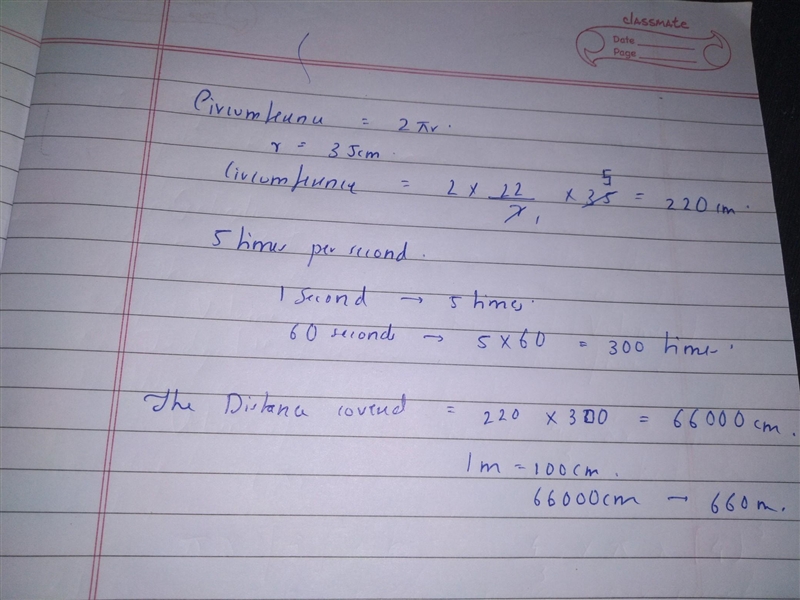 classmate
Date
Page
Circumference = 2πr.
r = 35cm.
Circumference = 2 × 22/7 1 × 35 5 = 220 cm.
5 times per second.
1 second → 5 times.
60 seconds → 5 × 60 = 300 times.
The Distance covered = 220 × 300 = 66000 cm.
1m = 100cm.
66000cm → 660 m.